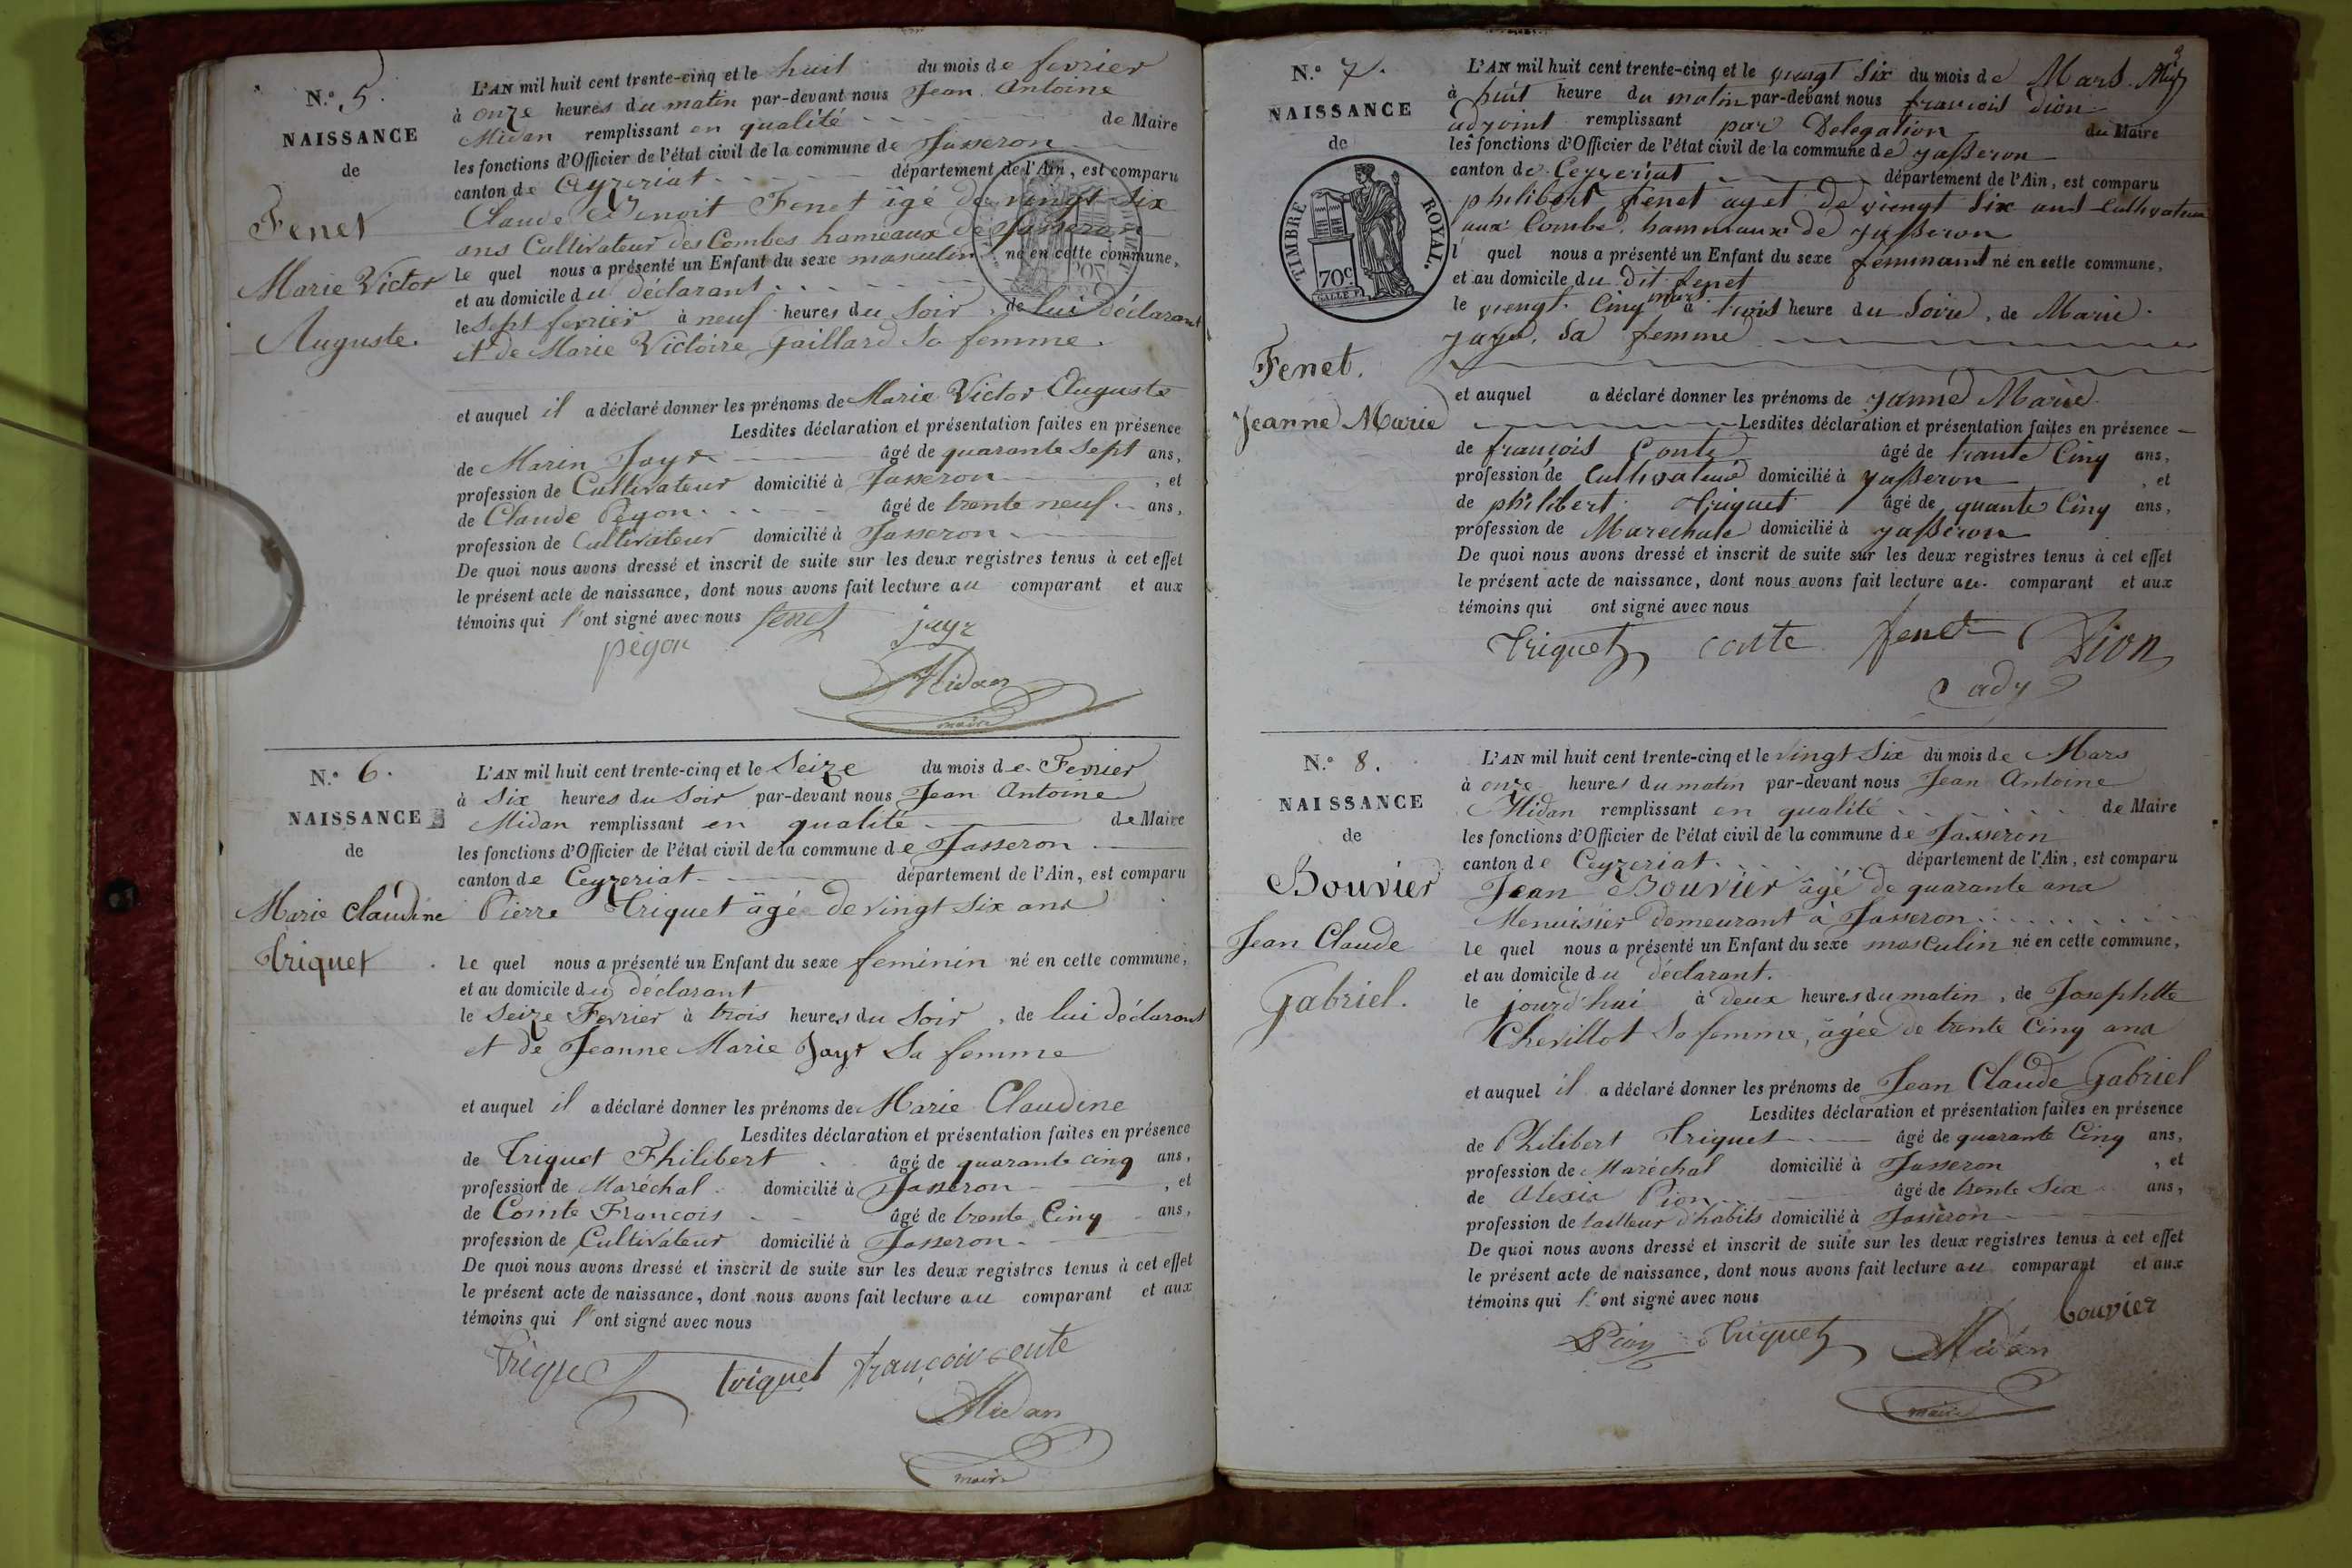 N.° 5.
NAISSANCE
de
Fenet
Marie Victor
Auguste.
L'AN mil huit cent trente-cinq et le huit du mois de fevrier
à onze heures du matin par-devant nous Jean Antoine
Midan remplissant en qualité de Maire
les fonctions d'Officier de l'état civil de la commune de Jasseron
canton de Ceyzeriat département de l'Ain, est comparu
Claude Benoit Fenet âgé de vingt six
ans Cultivateur des Combes hameaux de Jasseron
le quel nous a présenté un Enfant du sexe masculin né en cette commune,
et au domicile du déclarant
le sept fevrier à neuf heures du soir, de lui déclarant
et de Marie Victoire Gaillard sa femme.
et auquel il a déclaré donner les prénoms de Marie Victor Auguste
Lesdites déclaration et présentation faites en présence
de Marin Jayr âgé de quarante sept ans,
profession de Cultivateur domicilié à Jasseron, et
de Claude Pegon âgé de trente neuf ans,
profession de Cultivateur domicilié à Jasseron
De quoi nous avons dressé et inscrit de suite sur les deux registres tenus à cet effet
le présent acte de naissance, dont nous avons fait lecture au comparant et aux
témoins qui l'ont signé avec nous fenet jayr
pégon
Midan
maire
N.° 6.
NAISSANCE
de
Marie Claudine
Triquet
L'AN mil huit cent trente-cinq et le Seize du mois de Fevrier
à Six heures du Soir par-devant nous Jean Antoine
Midan remplissant en qualité de Maire
les fonctions d'Officier de l'état civil de la commune de Jasseron
canton de Ceyzeriat département de l'Ain, est comparu
Pierre Triquet âgé de vingt six ans
le quel nous a présenté un Enfant du sexe feminin né en cette commune,
et au domicile du déclarant
le Seize Fevrier à trois heures du Soir, de lui déclarant
et de Jeanne Marie Jayr sa femme
et auquel il a déclaré donner les prénoms de Marie Claudine
Lesdites déclaration et présentation faites en présence
de Triquet Philibert âgé de quarante cinq ans,
profession de Maréchal domicilié à Jasseron, et
de Comte François âgé de trente Cinq ans,
profession de Cultivateur domicilié à Jasseron
De quoi nous avons dressé et inscrit de suite sur les deux registres tenus à cet effet
le présent acte de naissance, dont nous avons fait lecture au comparant et aux
témoins qui l'ont signé avec nous
Triquet triquet françois conte
Midan
maire
N.° 7.
NAISSANCE
de
TIMBRE ROYAL.
70c
Fenet.
Jeanne Marie
9
L'AN mil huit cent trente-cinq et le viengt Six du mois de Mars
à huit heure du matin par-devant nous francois Dion
adjoint remplissant par Delegation du Maire
les fonctions d'Officier de l'état civil de la commune de yasseron
canton de Ceyzeriat département de l'Ain, est comparu
philibert fenet aget de viengt Six ans Cultivateur
aux Combe. hammaux de yasseron
l quel nous a présenté un Enfant du sexe féminant né en cette commune,
et au domicile du Dit fenet
le viengt Cinq mars à trois heure du Soire, de Marie
yayr. Sa femme
et auquel a déclaré donner les prénoms de yanne Marie
Lesdites déclaration et présentation faites en présence
de françois Conte âgé de trante Cinq ans,
profession de Cultivateur domicilié à yasseron, et
de philibert triquet âgé de quante Cinq ans,
profession de Marechale domicilié à yasseron
De quoi nous avons dressé et inscrit de suite sur les deux registres tenus à cet effet
le présent acte de naissance, dont nous avons fait lecture au comparant et aux
témoins qui ont signé avec nous
Triquet conte fenet Dion
adj
N.° 8.
NAISSANCE
de
Bouvier
Jean Claude
Gabriel.
L'AN mil huit cent trente-cinq et le vingt Six du mois de Mars
à onze heures du matin par-devant nous Jean Antoine
Midan remplissant en qualité de Maire
les fonctions d'Officier de l'état civil de la commune de Jasseron
canton de Ceyzeriat département de l'Ain, est comparu
Jean Bouvier âgé de quarante ans
Menuisier demeurant à Jasseron
le quel nous a présenté un Enfant du sexe masculin né en cette commune,
et au domicile du déclarant.
le jourd'hui à deux heures du matin, de Josephtte
Chevillot sa femme, âgée de trente Cinq ans
et auquel il a déclaré donner les prénoms de Jean Claude Gabriel
Lesdites déclaration et présentation faites en présence
de Philibert Triquet âgé de quarante Cinq ans,
profession de Maréchal domicilié à Jasseron, et
de Alexis Pion âgé de trente Six ans,
profession de tailleur d'habits domicilié à Jasseron
De quoi nous avons dressé et inscrit de suite sur les deux registres tenus à cet effet
le présent acte de naissance, dont nous avons fait lecture au comparant et aux
témoins qui l'ont signé avec nous
bouvier
Pion Triquet Midan
maire